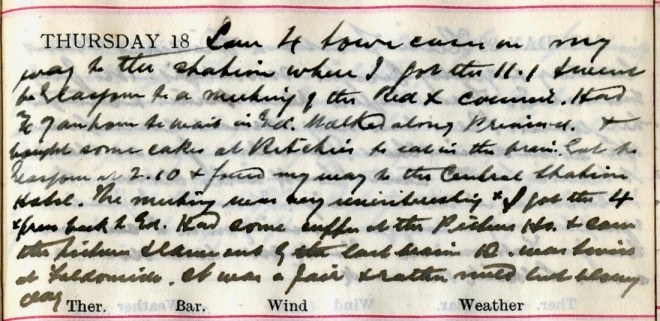 THURSDAY 18 Saw 4 town cars on my
way to the station where I got the 11.1 train
to Glasgow to a meeting of the Red X council. Had
to wait in Ed. Walked along Princes St. &
bought some cakes at Ritchies to eat in the train. Got to
Glasgow at 2.10 & found my way to the Central Station
Hotel. The meeting was very uninteresting & I got the 4
xpress back to Ed. Had some supper at the Picture Ho. & saw
the pictures & came out by the last train. R. was
at . It was a fair & rather mild but blowy
day
Ther. Bar. Wind Weather